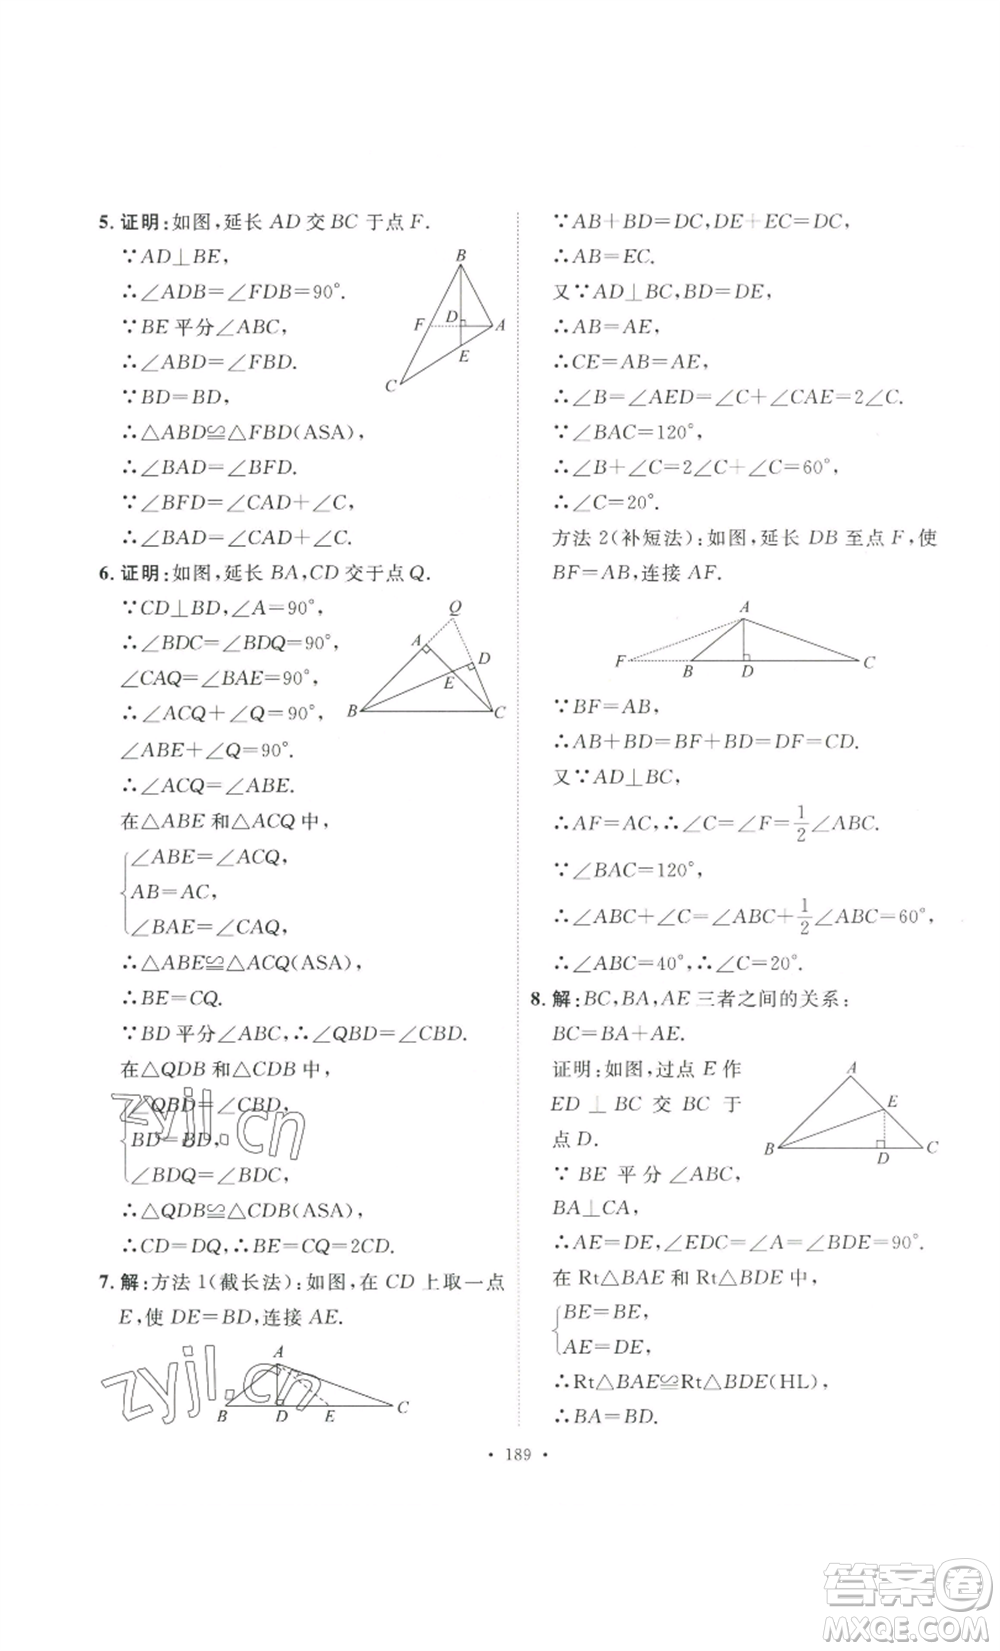 5. 证明:如图,延长 AD 交 BC 于点 F.
∵AD⊥BE,
∴∠ADB=∠FDB=90°.
∵BE 平分∠ABC,
∴∠ABD=∠FBD.
∵BD=BD,
∴△ABD≌△FBD(ASA),
∴∠BAD=∠BFD.
∵∠BFD=∠CAD+∠C,
∴∠BAD=∠CAD+∠C.
B
F
D
A
E
C
6. 证明:如图,延长 BA,CD 交于点 Q.
∵CD⊥BD,∠A=90°,
∴∠BDC=∠BDQ=90°,
∠CAQ=∠BAE=90°,
∴∠ACQ+∠Q=90°,
∠ABE+∠Q=90°.
∴∠ACQ=∠ABE.
Q
A
D
E
B
C
在△ABE 和△ACQ 中,
∠ABE=∠ACQ,
AB=AC,
∠BAE=∠CAQ,
∴△ABE≌△ACQ(ASA),
∴BE=CQ.
∵BD 平分∠ABC,∴∠QBD=∠CBD.
在△QDB 和△CDB 中,
∠QBD=∠CBD,
BD=BD,
∠BDQ=∠BDC,
∴△QDB≌△CDB(ASA),
∴CD=DQ,∴BE=CQ=2CD.
7. 解:方法 1(截长法):如图,在 CD 上取一点
E,使 DE=BD,连接 AE.
A
B
D
E
C
∵AB+BD=DC,DE+EC=DC,
∴AB=EC.
又∵AD⊥BC,BD=DE,
∴AB=AE,
∴CE=AB=AE,
∴∠B=∠AED=∠C+∠CAE=2∠C.
∵∠BAC=120°,
∴∠B+∠C=2∠C+∠C=60°,
∴∠C=20°.
方法 2(补短法):如图,延长 DB 至点 F,使
BF=AB,连接 AF.
A
F
B
D
C
∵BF=AB,
∴AB+BD=BF+BD=DF=CD.
又∵AD⊥BC,
∴AF=AC,∴∠C=∠F=1/2∠ABC.
∵∠BAC=120°,
∴∠ABC+∠C=∠ABC+1/2∠ABC=60°,
∴∠ABC=40°,∴∠C=20°.
8. 解:BC,BA,AE 三者之间的关系:
BC=BA+AE.
证明:如图,过点 E 作
ED⊥BC 交 BC 于
点 D.
∵BE 平分∠ABC,
BA⊥CA,
A
E
B
D
C
∴AE=DE,∠EDC=∠A=∠BDE=90°.
在 Rt△BAE 和 Rt△BDE 中,
BE=BE,
AE=DE,
∴Rt△BAE≌Rt△BDE(HL),
∴BA=BD.
· 189 ·
zyjl.cn
zyjl.cn
答案圈
MXQE.COM